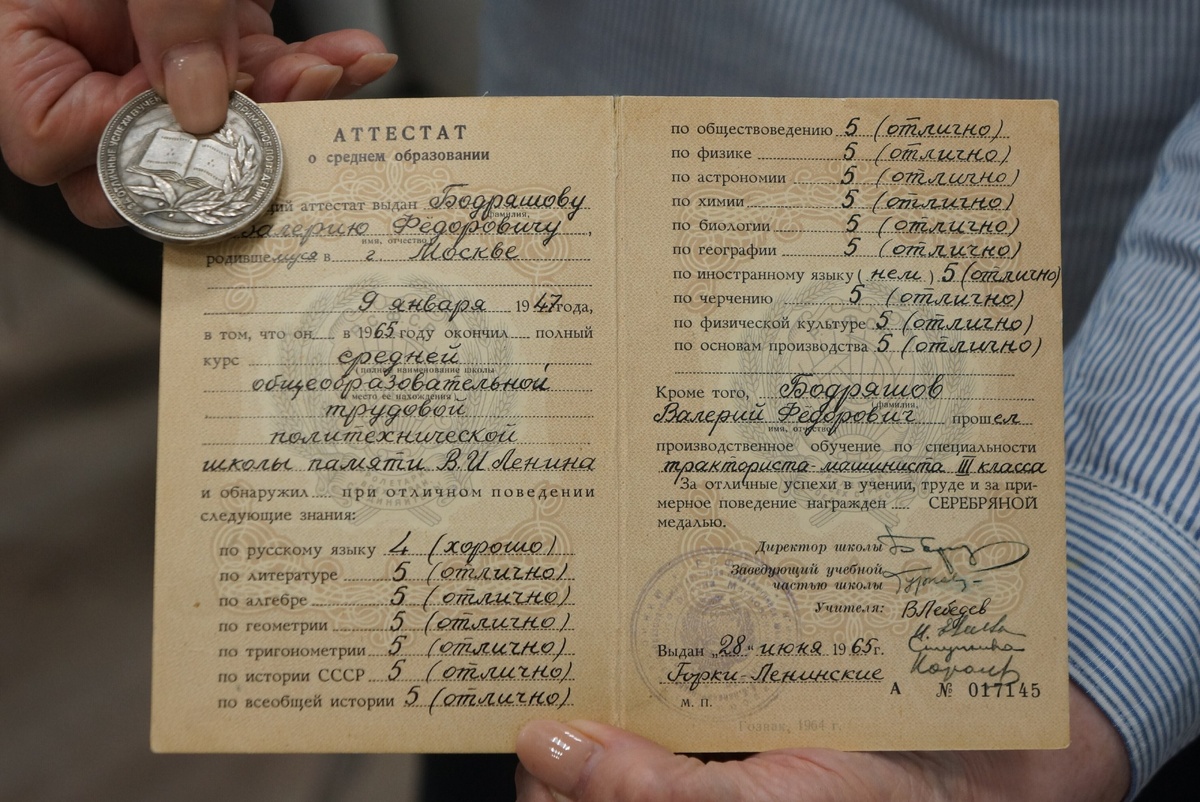 АТТЕСТАТ
о среднем образовании
аттестат выдан Бодряшову
фамилия,
Валерию Фёдоровичу,
имя, отчество
родившемуся в г. Москве
9 января 1947 года,
в том, что он в 1965 году окончил полный
курс средней
(полное наименование школы
общеобразовательной,
место ее нахождения)
трудовой
политехнической
школы памяти В.И Ленина
и обнаружил при отличном поведении
следующие знания:
по русскому языку 4 (хорошо)
по литературе 5 (отлично)
по алгебре 5 (отлично)
по геометрии 5 (отлично)
по тригонометрии 5 (отлично)
по истории СССР 5 (отлично)
по всеобщей истории 5 (отлично)
по обществоведению 5 (отлично)
по физике 5 (отлично)
по астрономии 5 (отлично)
по химии 5 (отлично)
по биологии 5 (отлично)
по географии 5 (отлично)
по иностранному языку (нем) 5 (отлично)
по черчению 5 (отлично)
по физической культуре 5 (отлично)
по основам производства 5 (отлично)
Кроме того, Бодряшов
фамилия,
Валерий Фёдорович прошел
имя, отчество
производственное обучение по специальности
тракториста-машиниста III класса
За отличные успехи в учении, труде и за при-
мерное поведение награжден СЕРЕБРЯНОЙ
медалью.
Директор школы
Заведующий учебной
частью школы
Учителя: В Лебедев
Выдан „28" июня 1965 г.
Горки-Ленинские
А № 017145
М. П.
Гознак, 1964 г.